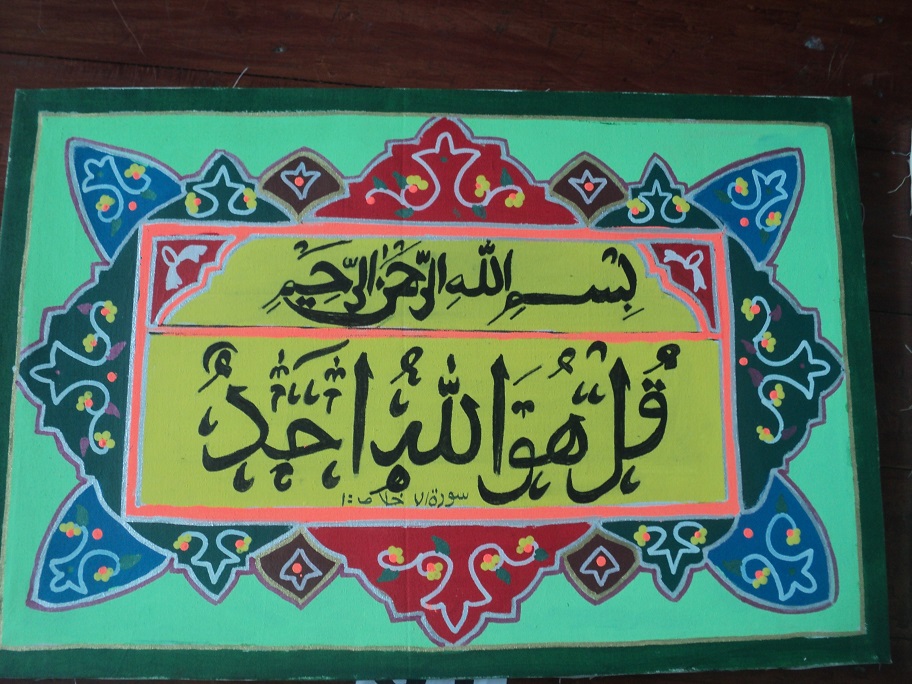 بِسْمِ اللّٰهِ الرَّحْمٰنِ الرَّحِيْمِ
قُلْ هُوَ اللّٰهُ اَحَدٌ
سورة الاخلاص:١